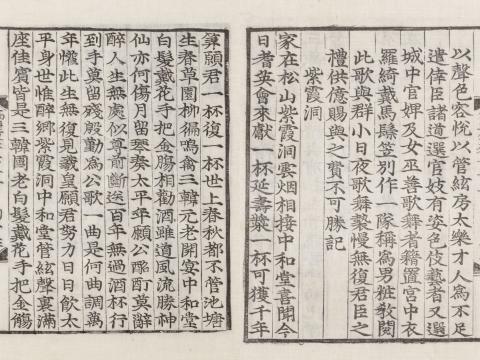 以聲色容悅以管絃房太樂才人爲不足
遣倖臣諸道選官妓有姿色伎藝者又選
城中官婢及女巫善歌舞者籍置宮中衣
羅綺戴馬鬉笠別作一隊稱爲男粧敎閱
此歌與群小日夜歌舞褻慢無復君臣之
禮供億賜與之費不可勝記
紫霞洞
家在松山紫霞洞雲烟相接中和堂喜聞今
日耆英會來獻一杯延壽漿一杯可獲千年
筭願君一杯復一杯世上春秋都不管池塘
生春草園柳徧鳴禽三韓元老開宴中和堂
白髮戴花手把金觴相勸酒雖道風流勝神
仙亦何傷月留琴奏太平年願公酩酊莫辭
醉人生無處似尊前斷送百年無過酒杯行
到手莫留殘殷勤爲公歌一曲是何曲調萬
年懽此生無復見羲皇願君努力日日飮太
平身世惟醉鄕紫霞洞中和堂管絃聲裏滿
座佳賓皆是三韓國老白髮戴花手把金觴